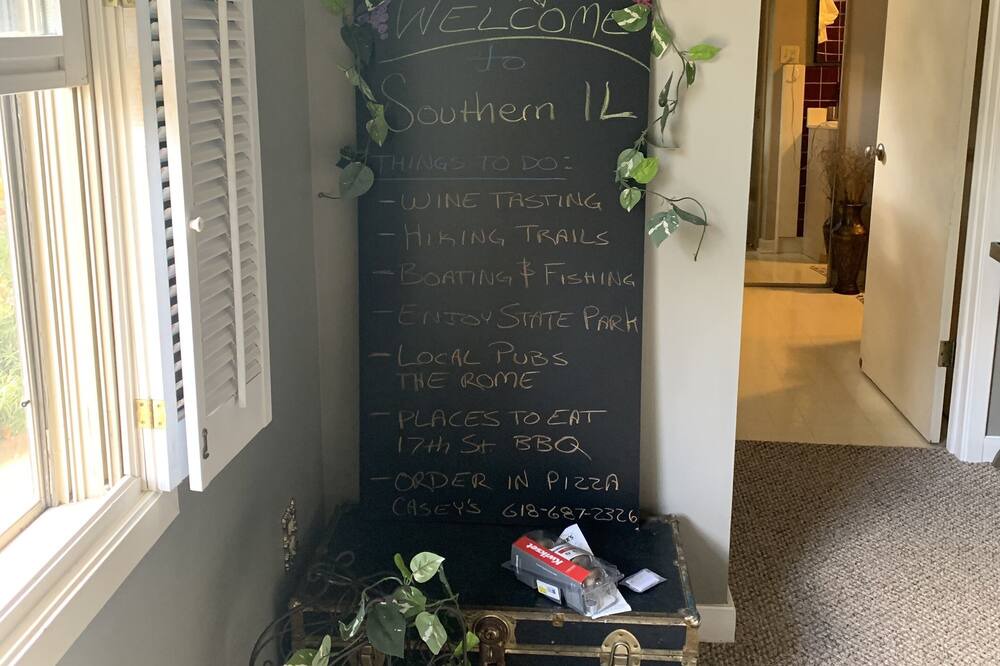 WELCOME
to
Southern IL
THINGS TO DO:
- WINE TASTING
- HIKING TRAILS
- BOATING & FISHING
- ENJOY STATE PARK
- LOCAL PUBS
THE ROME
- PLACES TO EAT
17th St BBQ
- ORDER IN PIZZA
CASEY'S 618-687-2326
Kwikset